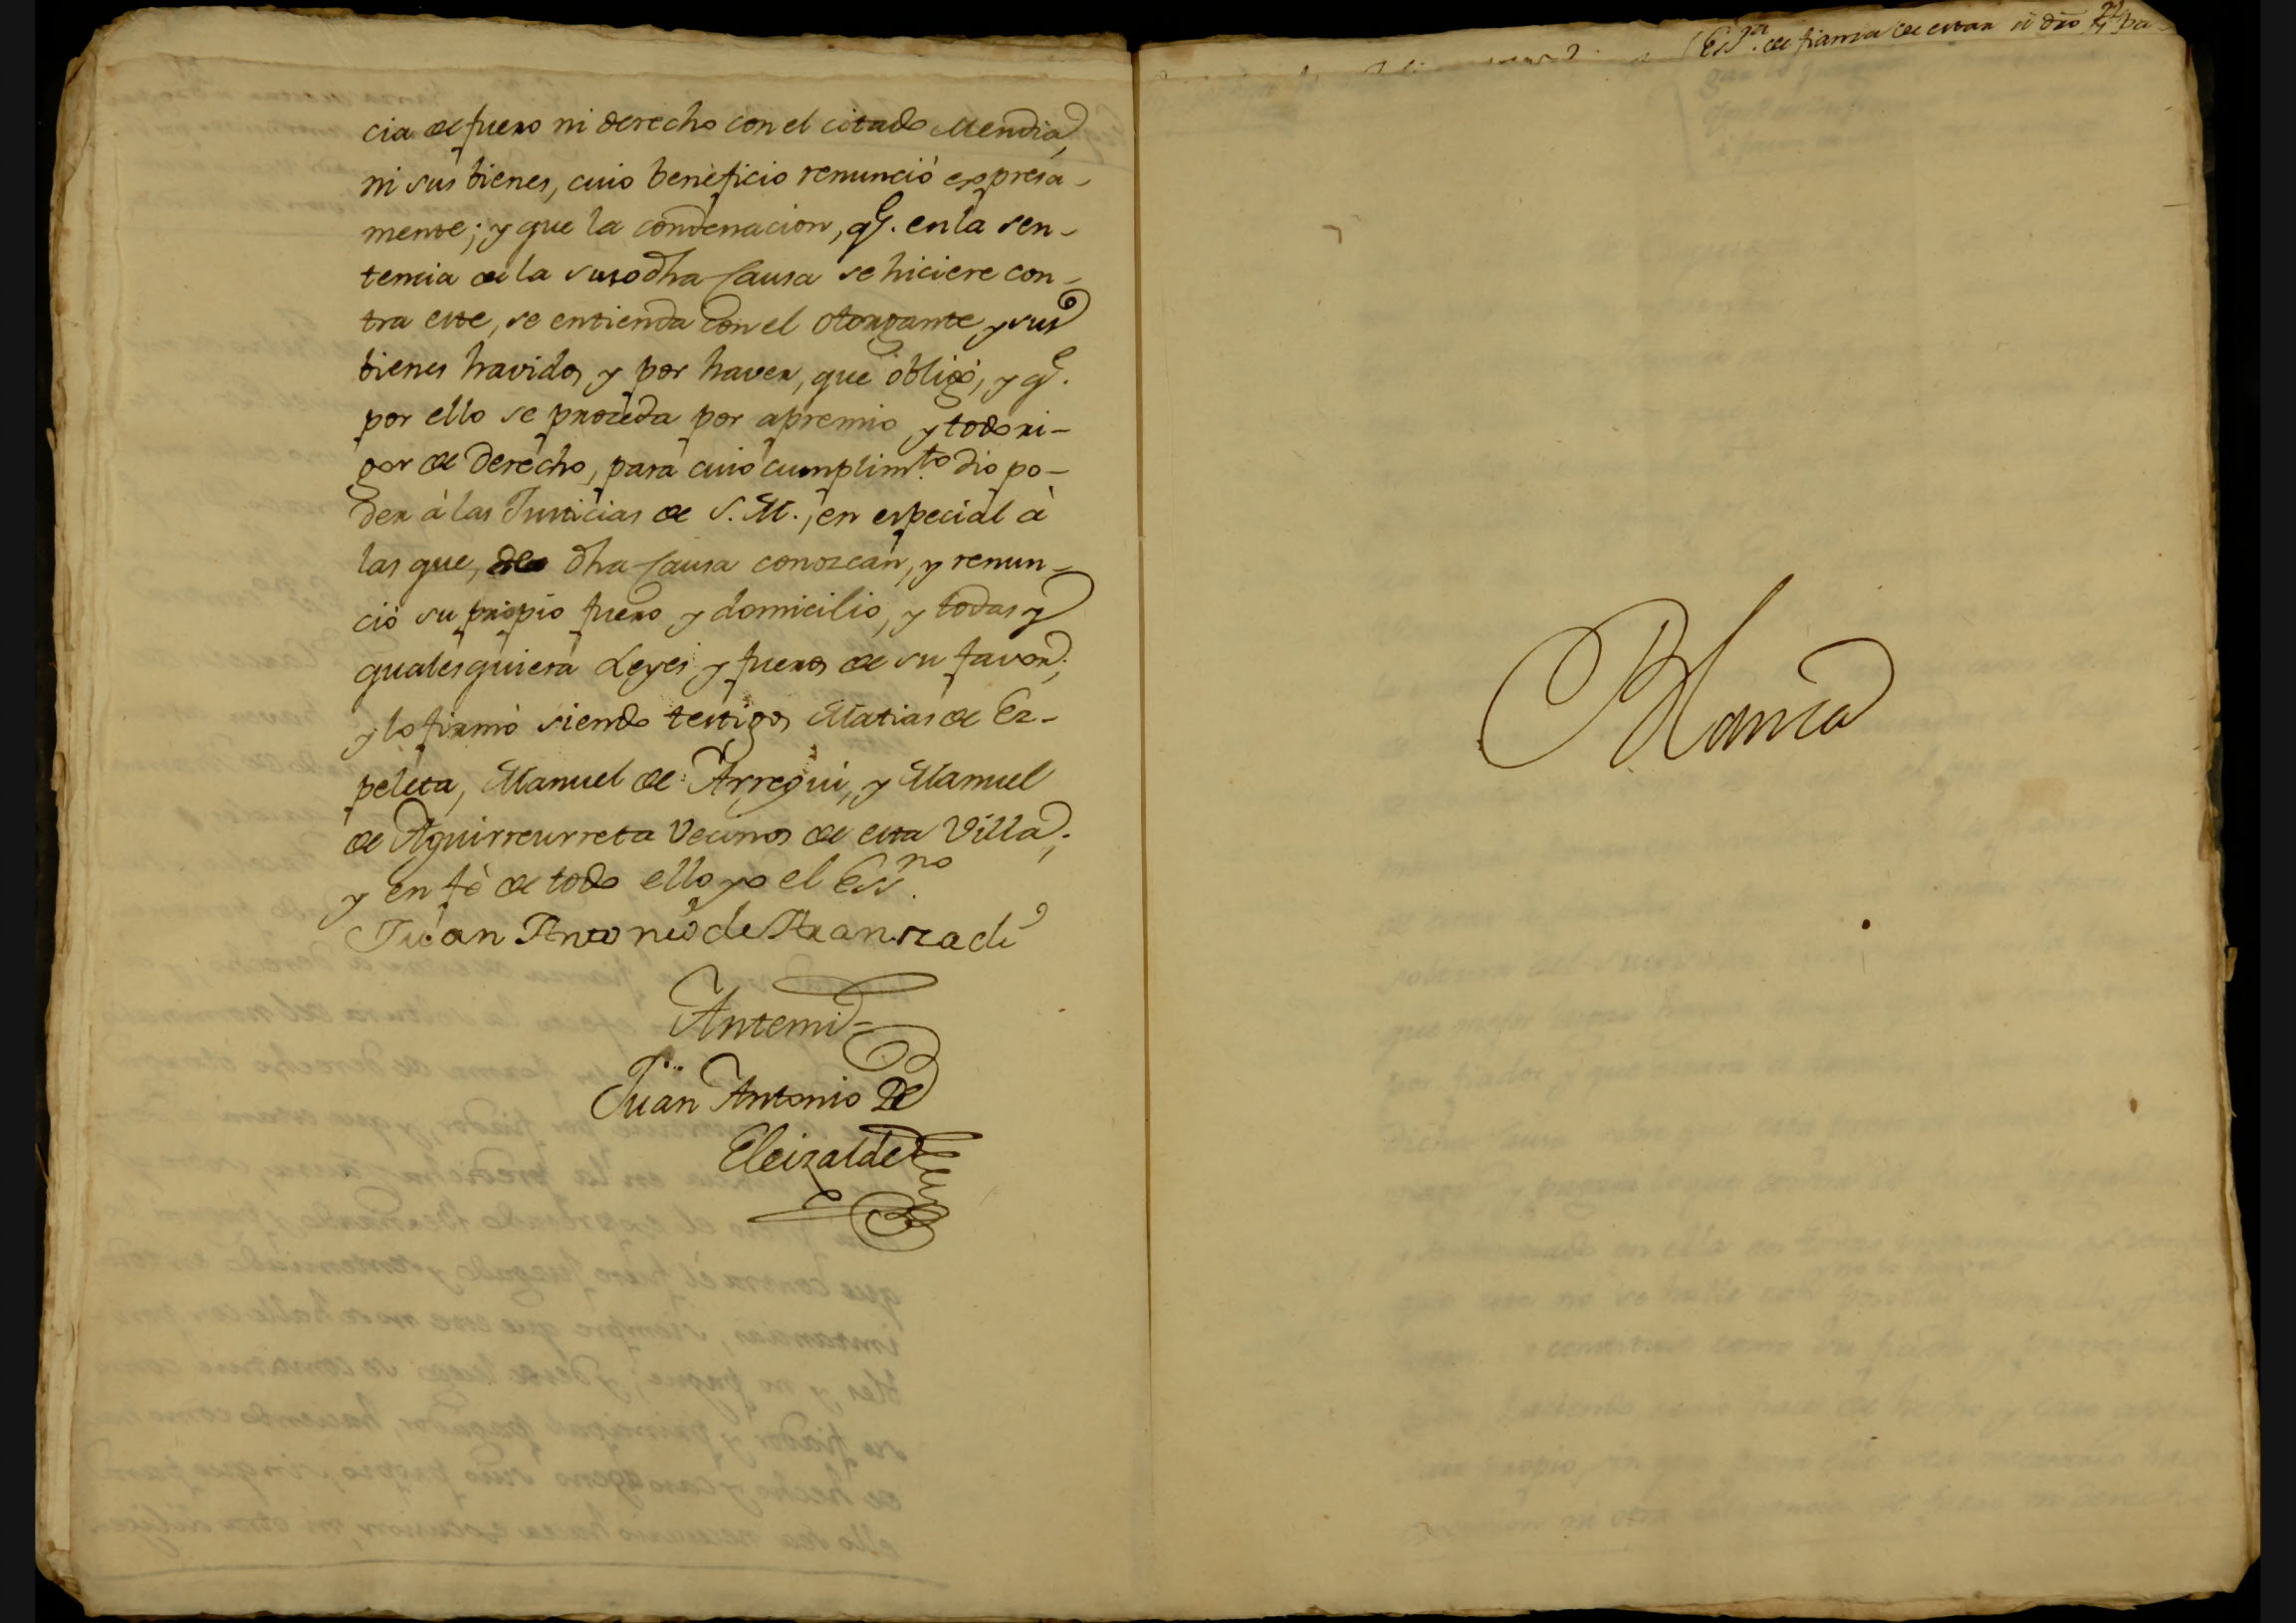 cia de fuero ni derecho con el citado Mendia,
ni sus bienes, cuio beneficio renunció expresa-
mente; y que la condenacion, q.e en la sen-
tencia de la susodha Causa se hiciere con-
tra este, se entienda con el otorgante, y sus
bienes havidos y por haver, que obligó, y q.e
por ello se proceda por apremio y todo ri-
gor de derecho, para cuio cumplim.to dio po-
der à las Justicias de S. M., en especial à
las que, de dha Causa conozcan, y renun-
ció su propio fuero y domicilio, y todas y
qualesquiera Leyes y fueros de su favor;
y lo firmó siendo testigos Matias de Ez-
peleta, Manuel de Arregui, y Manuel
de Aguirreurreta Vecinos de esta Villa;
y en fè de todo ello yo el Ess.no
Juan Antonio de Aranzadi
Antemi
Juan Antonio de
Eleizalde
Ess.ra de fianza de estar á dro y pa
Blanca